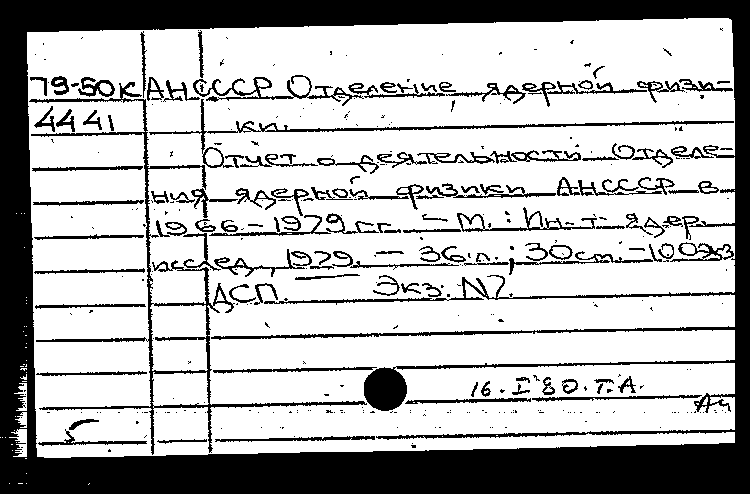 79-50К АНСССР Отделение ядерной физи-
4441 ки.
Отчет о деятельности Отделе-
ния ядерной физики АНСССР в
1966-1979 гг. — М. : Ин-т ядер.
исслед, 1979. — 36 л. ; 30 см. — 100 экз
ДСП. — Экз. N7.
16. I 80. Т.А.
Ач
5